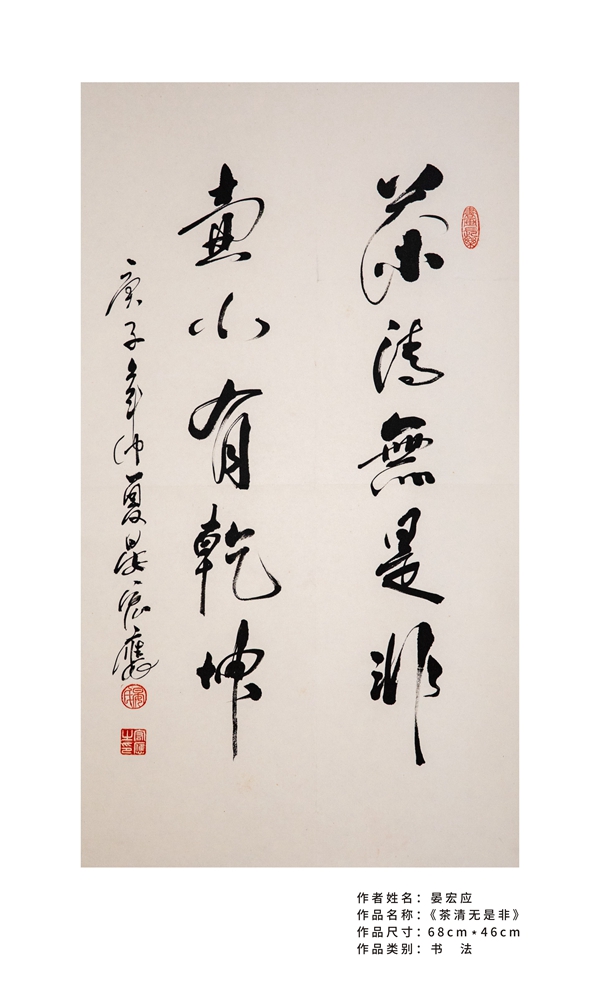 茶清無是非
壶小有乾坤
庚子年仲夏晏宏應
作者姓名：晏宏应
作品名称：《茶清无是非》
作品尺寸：68cm*46cm
作品类别：书 法